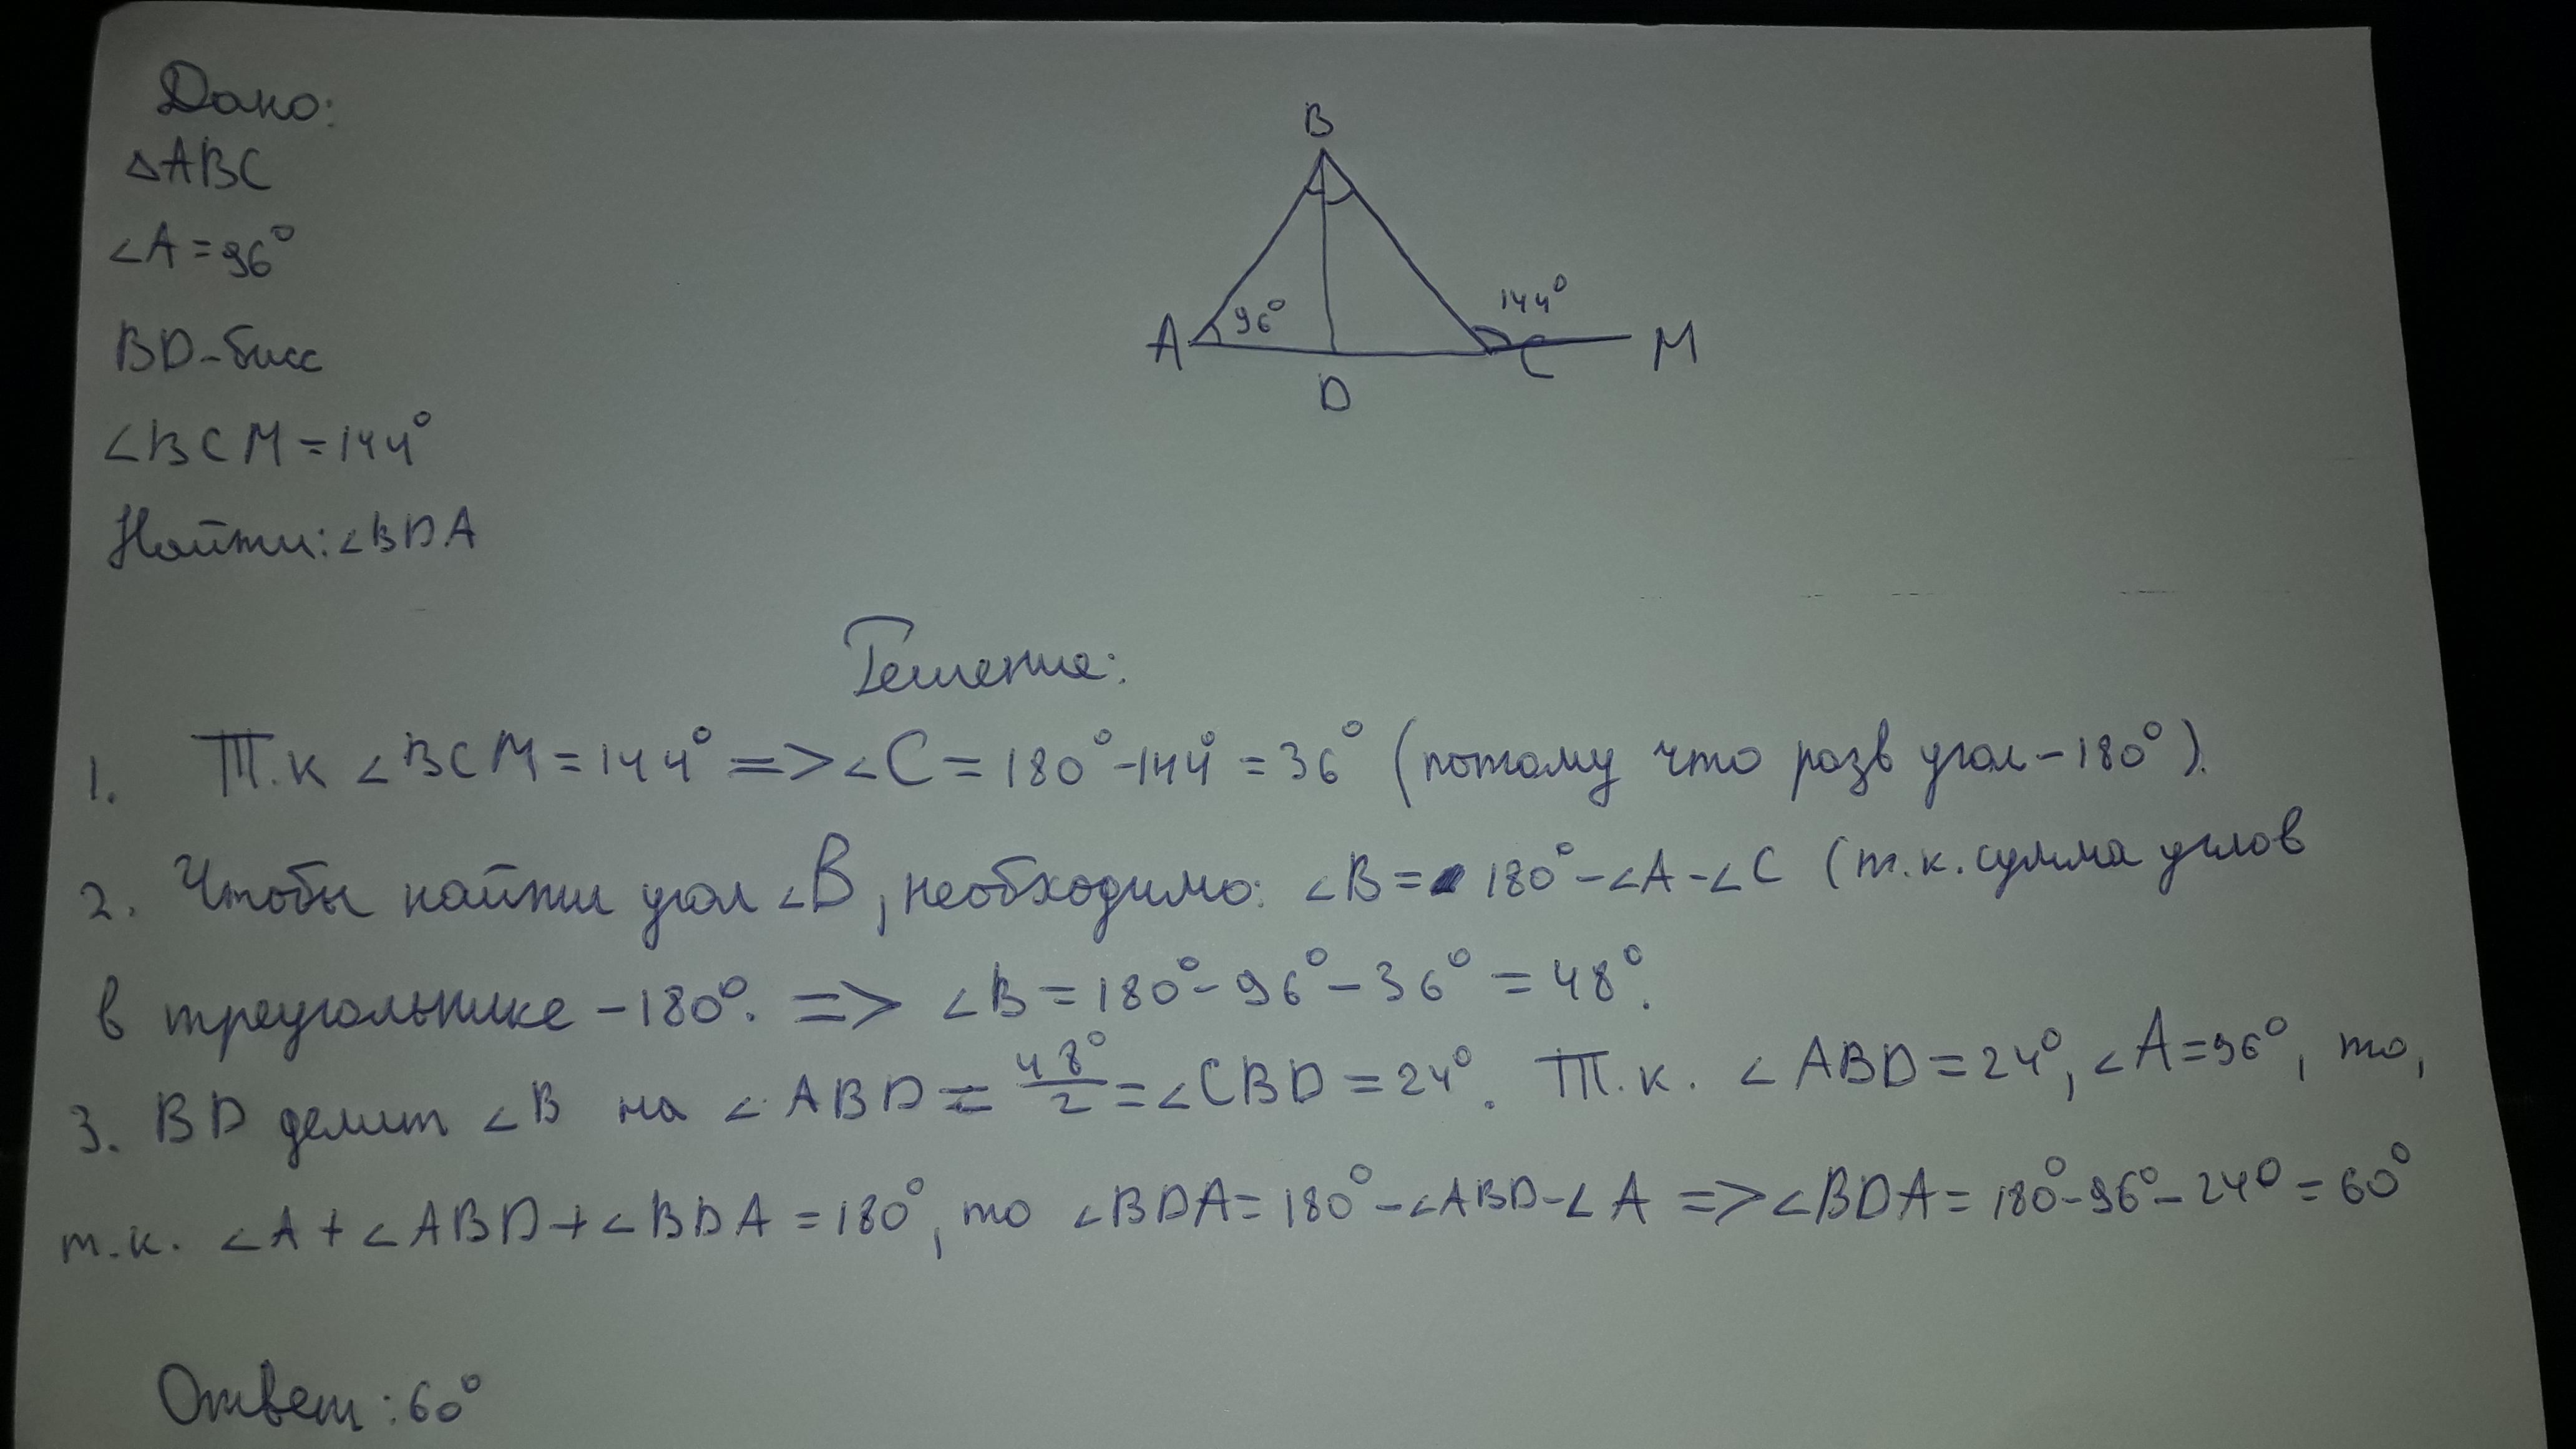 Дано:
△ABC
∠A=96°
BD-бисс
∠BCM=144°
Найти:∠BDA
B
A
96°
144°
C
M
D
Решение:
1. Т.к ∠BCM=144° => ∠C=180°-144°=36° (потому что разв угол-180°).
2. Чтобы найти угол ∠B, необходимо: ∠B= 180°-∠A-∠C (т.к. сумма углов
в треугольнике -180°. => ∠B=180°-96°-36°=48°.
3. BD делит ∠B на ∠ABD=48°/2=∠CBD=24°. Т.к. ∠ABD=24°, ∠A=96°, то,
т.к. ∠A+∠ABD+∠BDA=180°, то ∠BDA=180°-∠ABD-∠A => ∠BDA=180°-96°-24°=60°
Ответ:60°